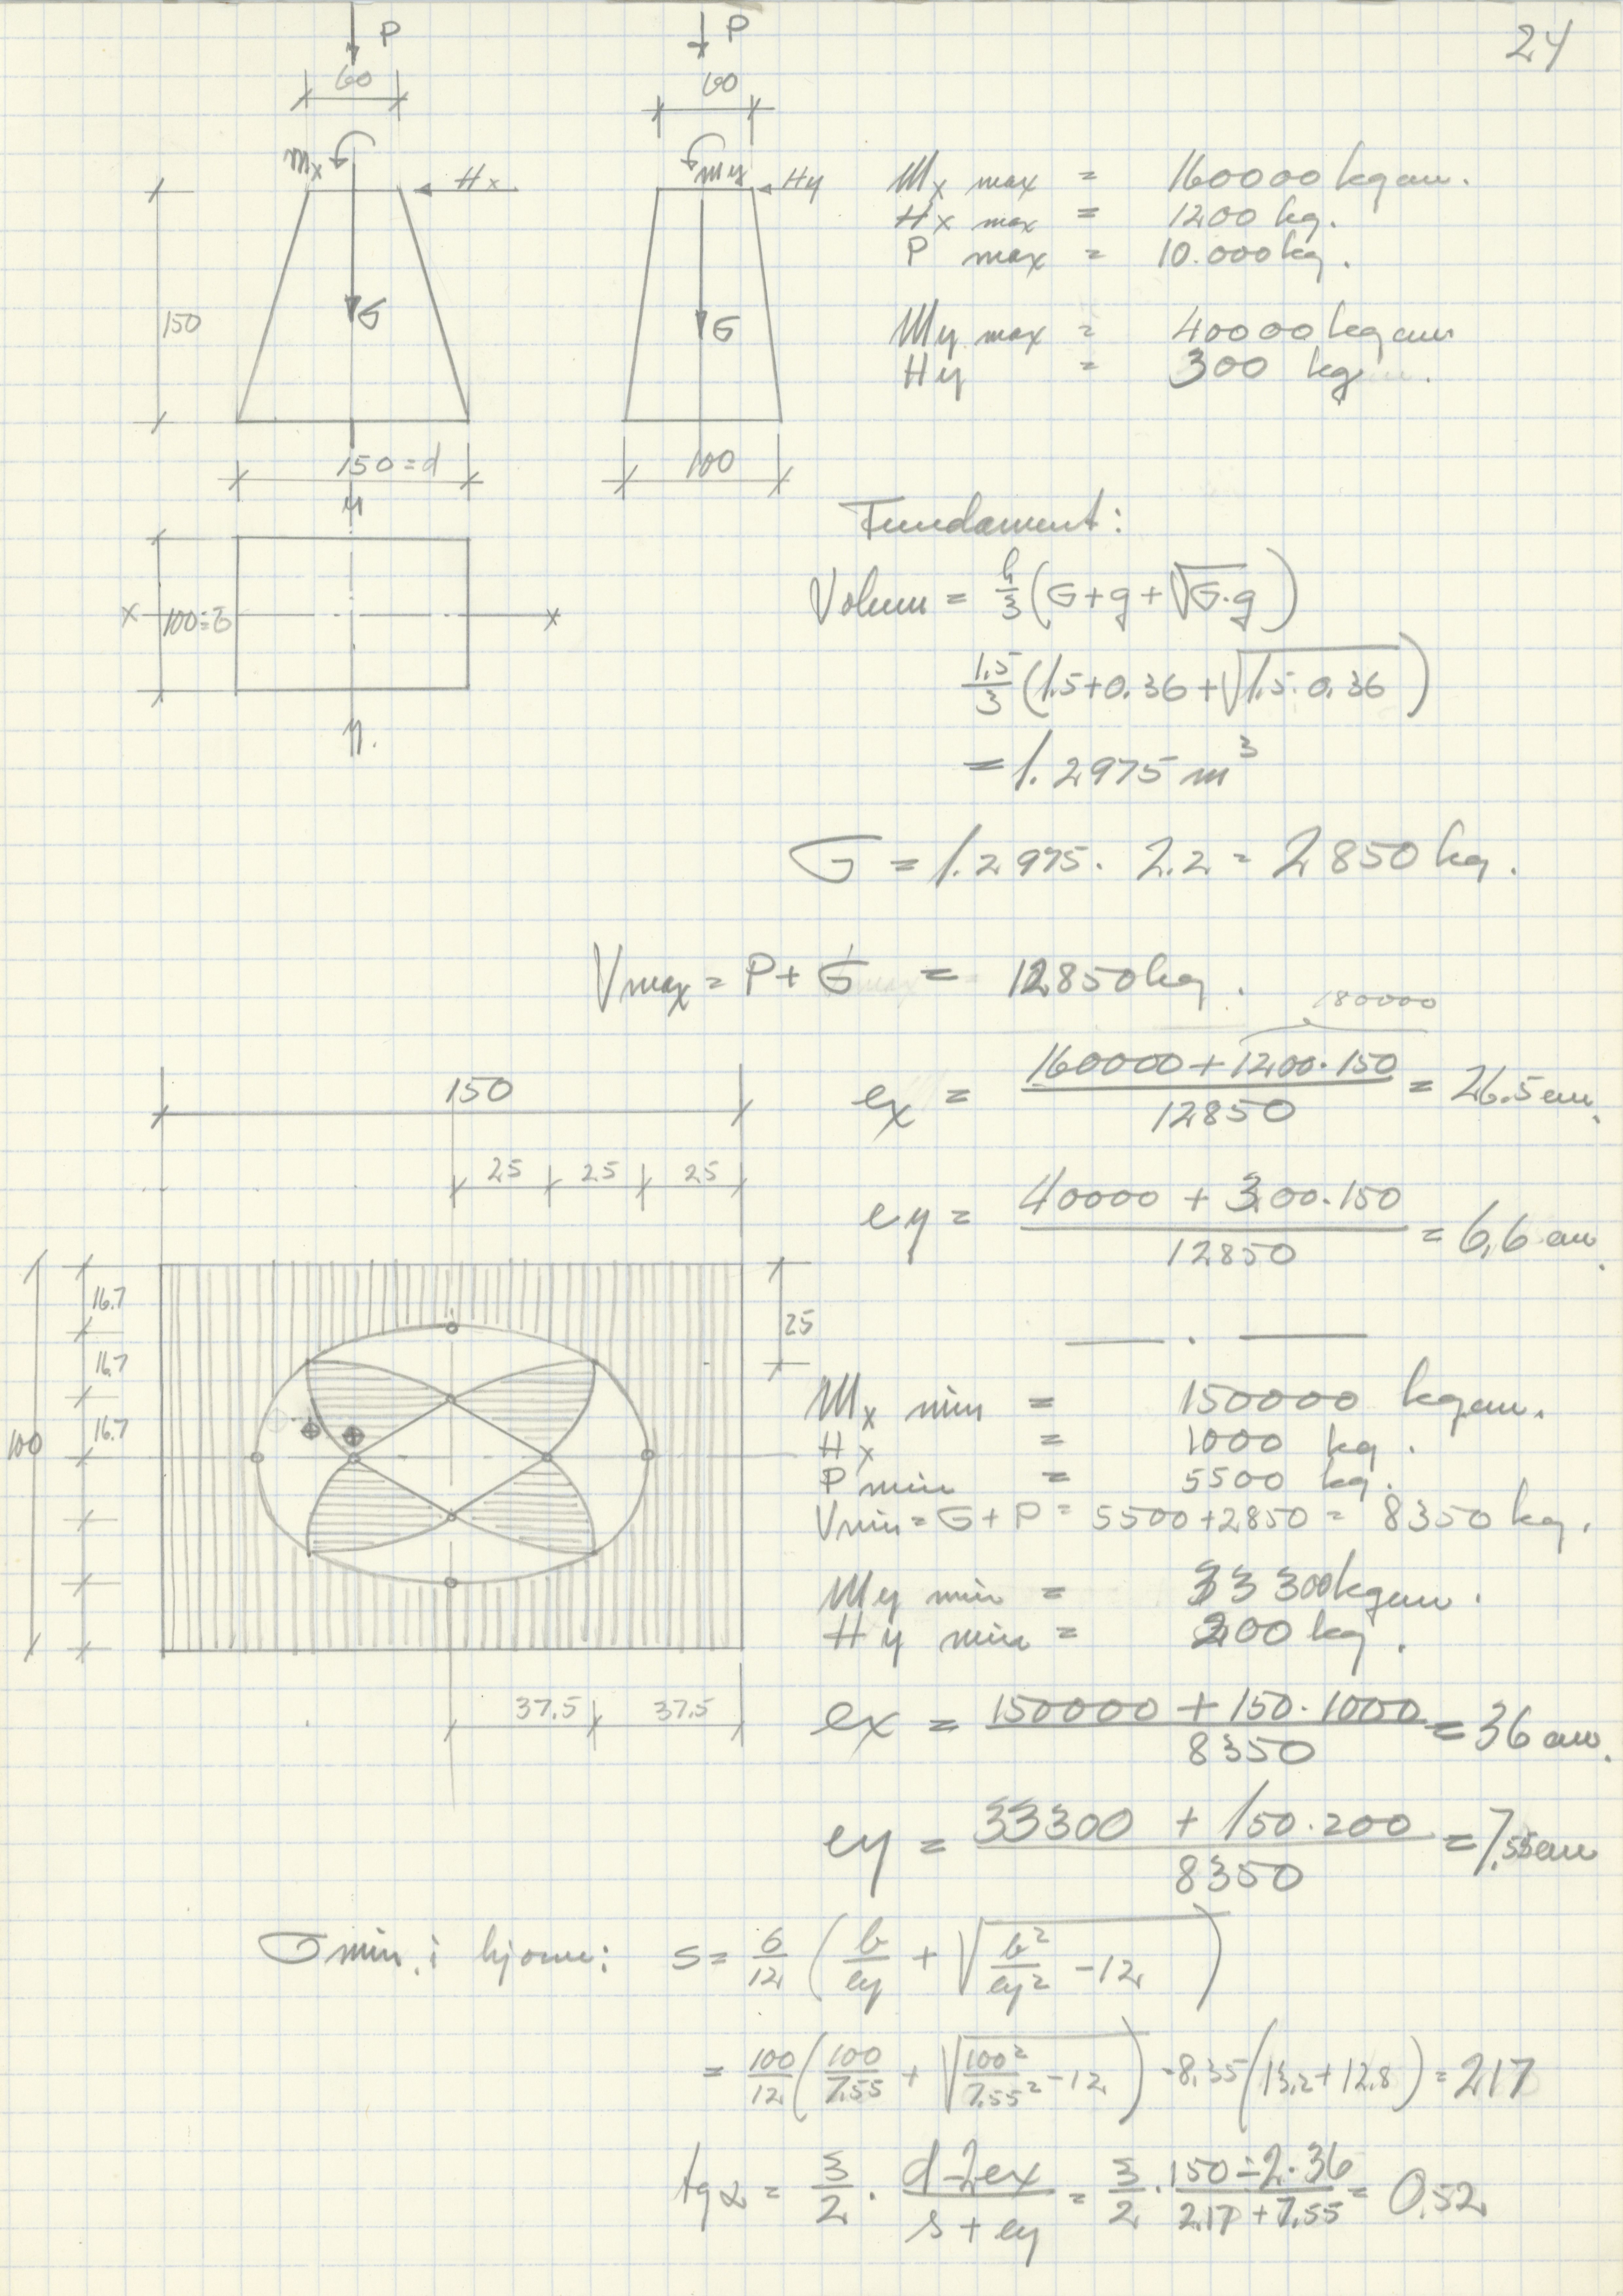 24
P
P
60
60
Mx
Hx
My
Hy
Mx max = 160000 kgcm.
Hx max = 1200 kg.
P max = 10.000 kg.
150
G
G
My max = 40000 kgcm
Hy = 300 kg
150=d
100
y
Fundament:
Volum = h/3 (G+g+√G·g)
x
100=b
x
1.5/3 (1.5+0.36+√1.5·0.36)
y.
= 1.2975 m³
G = 1.2975 · 2.2 = 2850 kg.
Vmax = P+G = 12850 kg.
180000
ex = 160000+1200·150/12850 = 26.5 cm.
150
25 25 25
ey = 40000 + 300·150/12850 = 6,6 cm.
16.7
25
16.7
16.7
100
Mx min = 150000 kgcm.
Hx = 1000 kg.
P min = 5500 kg.
Vmin = G+P = 5500+2850 = 8350 kg.
My min = 33300 kgcm.
Hy min = 200 kg.
37.5 37.5
ex = 150000 + 150·1000/8350 = 36 cm.
ey = 33300 + 150·200/8350 = 7,55 cm
σ min. i hjørne: s = b/12 (b/ey + √b²/ey² -12)
= 100/12 (100/7.55 + √100²/7.55² -12) = 8,35 (13,2+12,8) = 217
tg α = 3/2 · d-2ex/s+ey = 3/2 · 150÷2·36/217+7,55 = 0,52